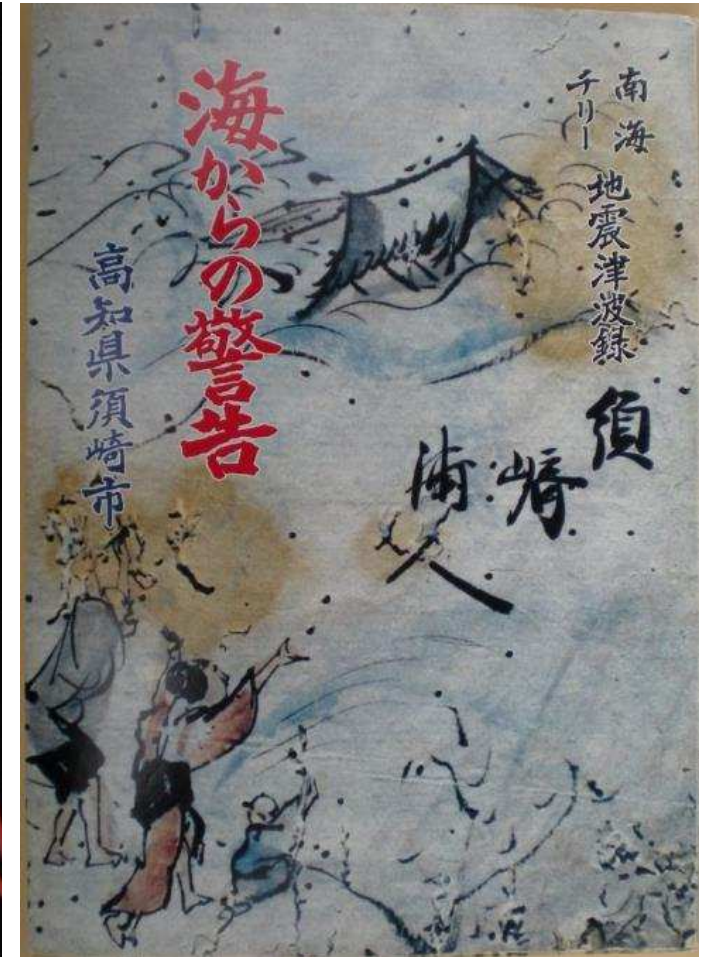 南海
チリー
地震津波録
海からの警告
高知県須崎市
須
崎
浦
人